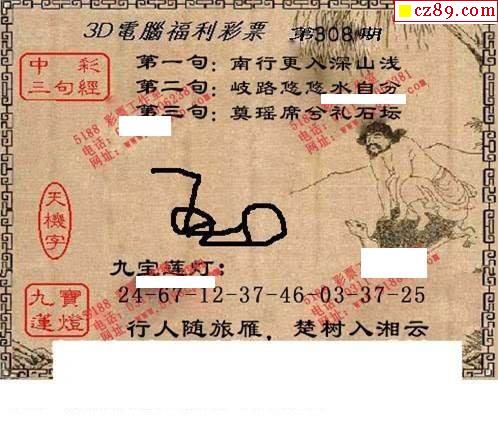 cz89.com
3D電腦福利彩票 第308期
中彩
三句經
第一句：南行更入深山浅
第二句：岐路悠悠水自分
第三句：奠瑶席兮礼石坛
天機字
九宝莲灯：
九寶
蓮燈
24-67-12-37-46-03-37-25
行人随旅雁，楚树入湘云